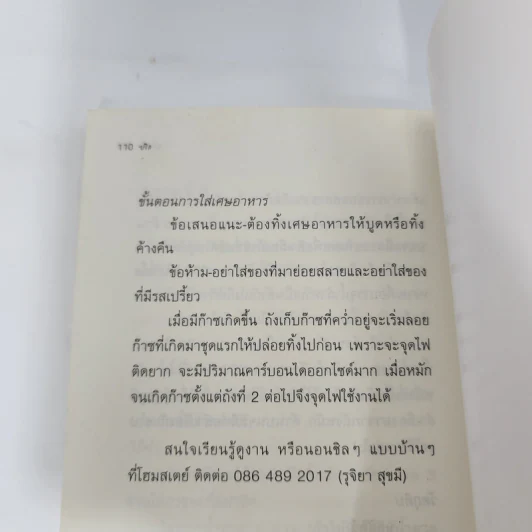 110 จริง
ขั้นตอนการใส่เศษอาหาร
ข้อเสนอแนะ-ต้องทิ้งเศษอาหารให้บูดหรือทิ้ง
ค้างคืน
ข้อห้าม-อย่าใส่ของที่มาย่อยสลายและอย่าใส่ของ
ที่มีรสเปรี้ยว
เมื่อมีก๊าซเกิดขึ้น ถังเก็บก๊าซที่คว่ำอยู่จะเริ่มลอย
ก๊าซที่เกิดมาชุดแรกให้ปล่อยทิ้งไปก่อน เพราะจะจุดไฟ
ติดยาก จะมีปริมาณคาร์บอนไดออกไซด์มาก เมื่อหมัก
จนเกิดก๊าซตั้งแต่ถังที่ 2 ต่อไปจึงจุดไฟใช้งานได้
สนใจเรียนรู้ดูงาน หรือนอนชิลๆ แบบบ้านๆ
ที่โฮมสเตย์ ติดต่อ 086 489 2017 (รุจิยา สุขมี)